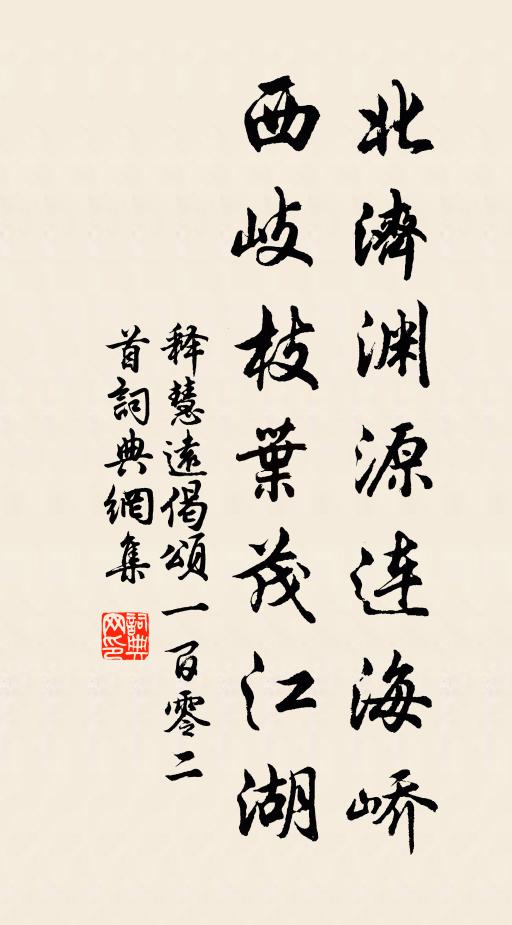 北濟渊源连海峤
西岐枝葉茂江湖
释慧遠偈頌一百零二
首詞典網集
詞典
网印